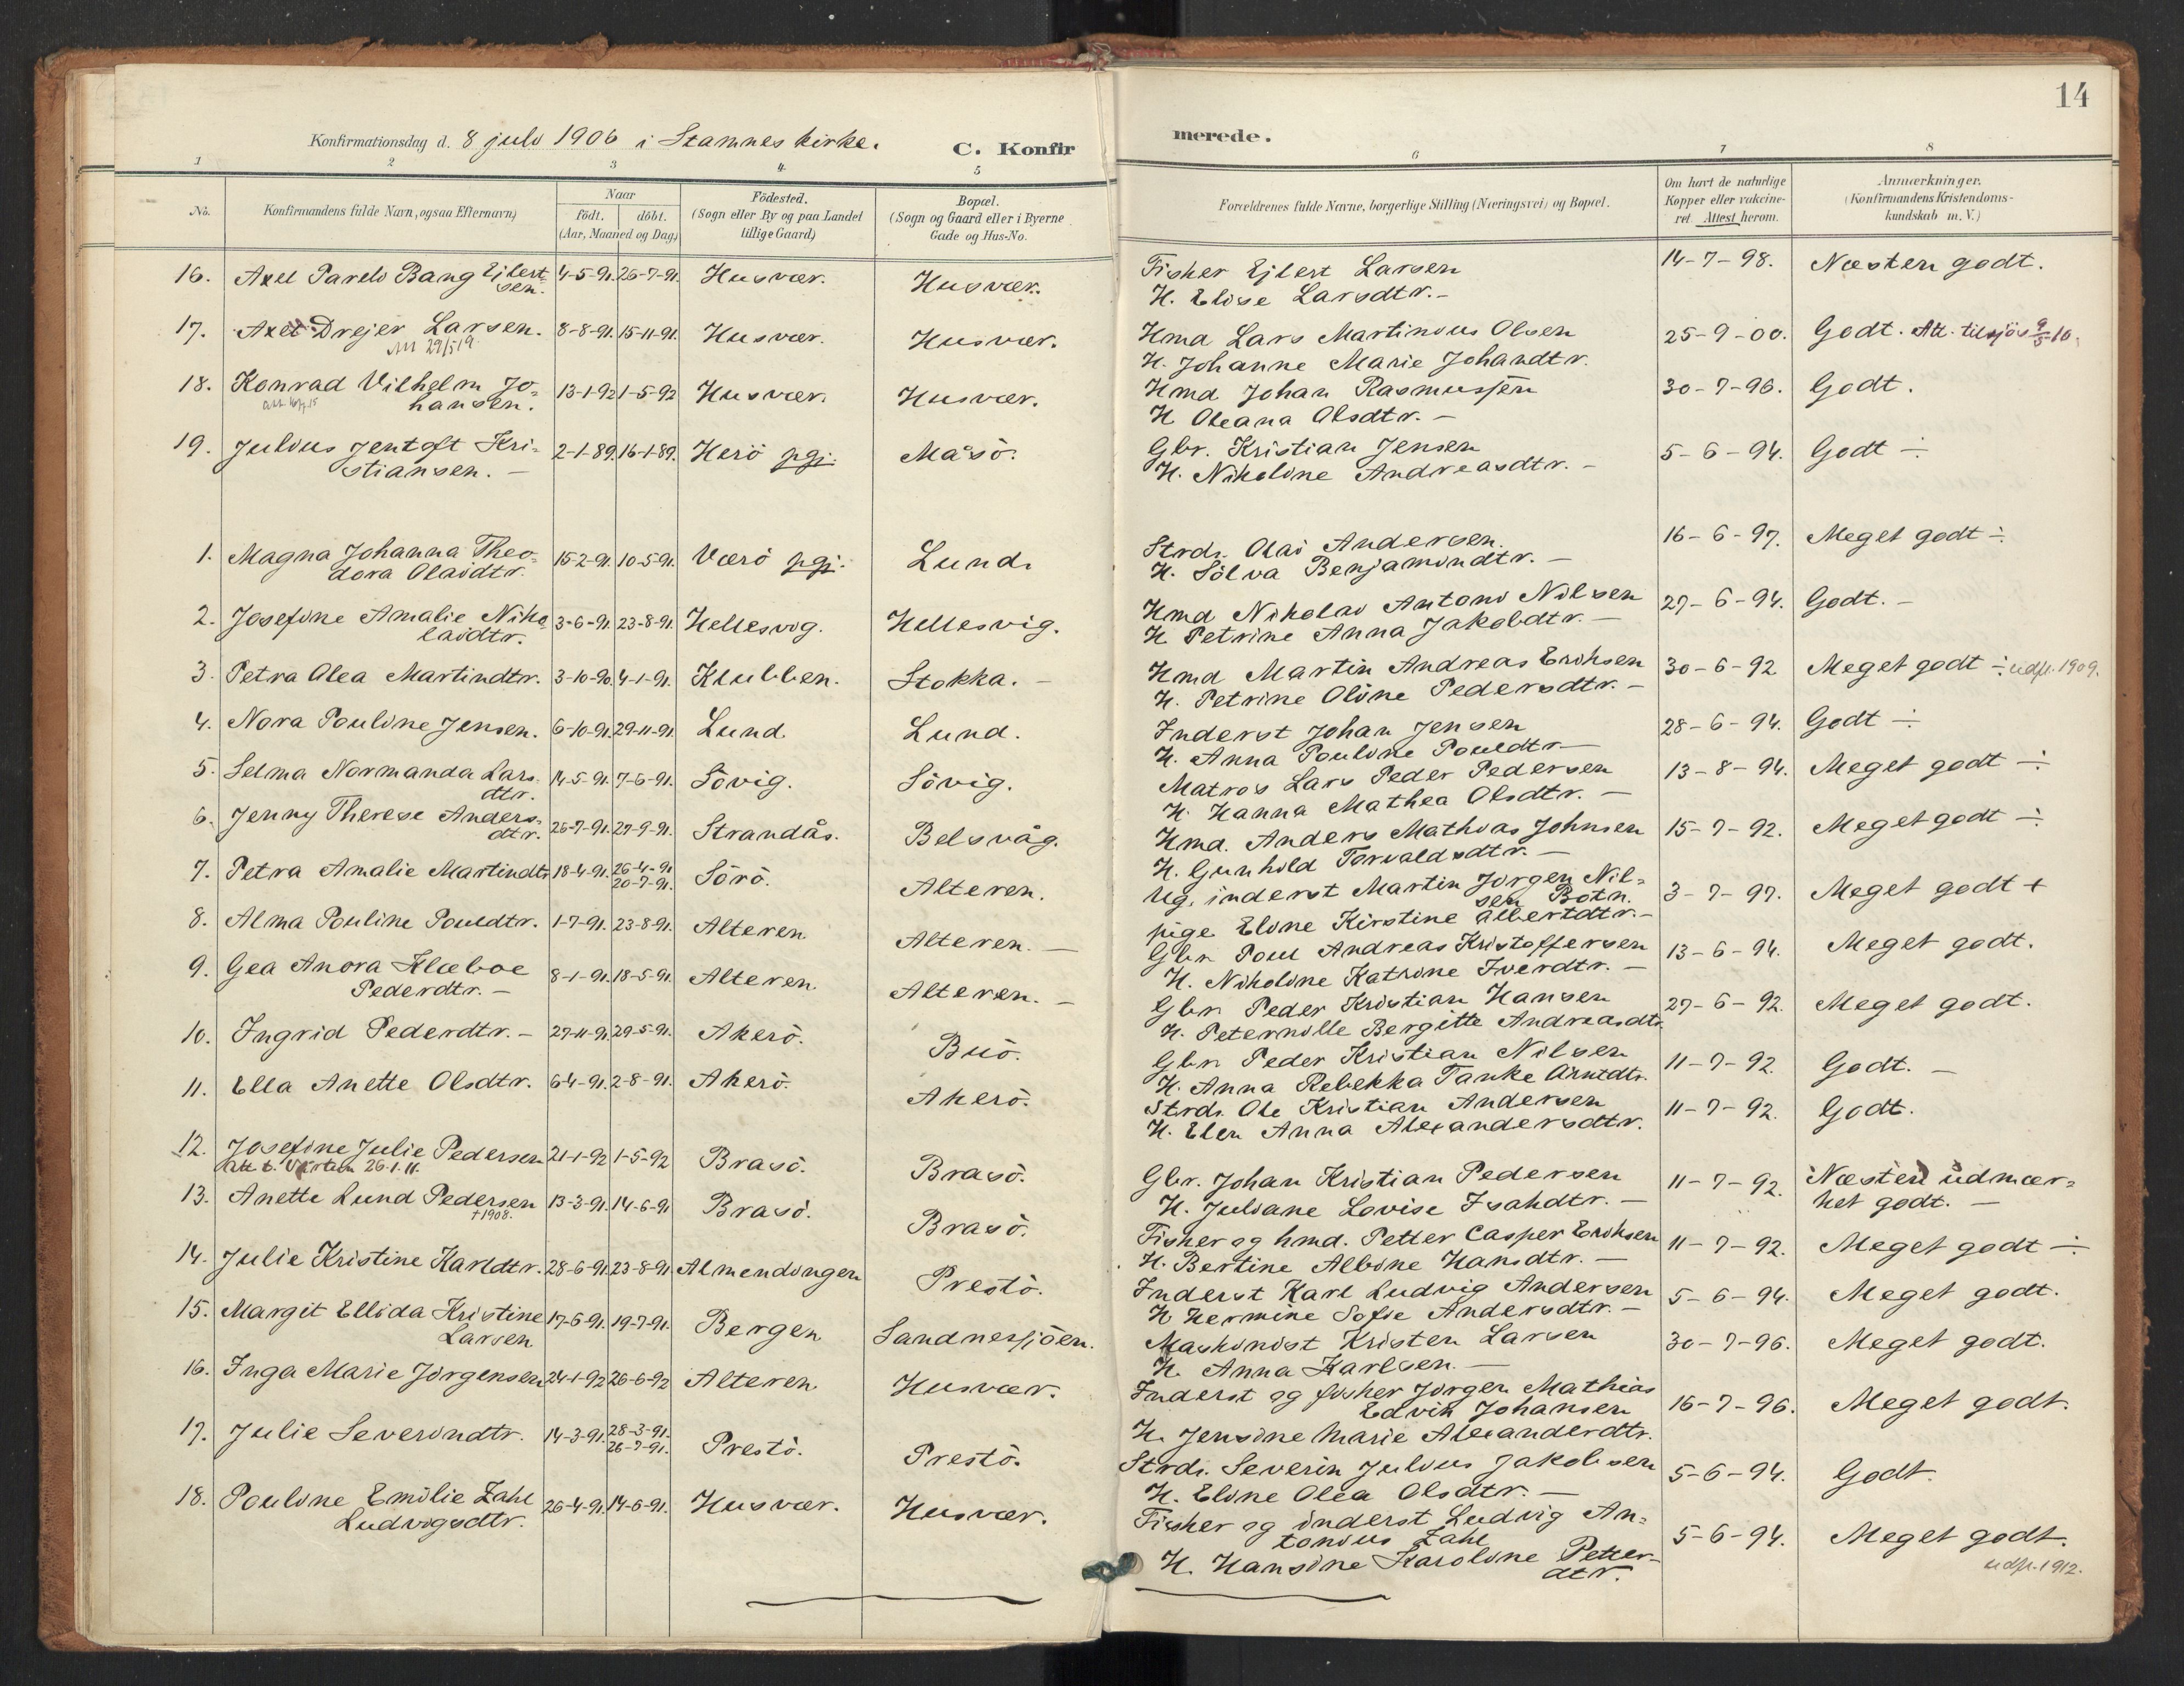 14
Konfirmationsdag d. 8 juli 1906 i Stamnes kirke.
C. Konfirmerede.
1 2 3 4 5 6 7 8
No.
Konfirmandens fulde Navn, ogsaa Efternavn)
Naar
födt. döbt.
(Aar, Maaned og Dag)
Födested.
(Sogn eller By og paa Landet
tillige Gaard)
Bopæl.
(Sogn og Gaard eller i Byerne
Gade og Hus-No.
Forældrenes fulde Navne, borgerlige Stilling (Næringsvei) og Bopæl.
Om havt de naturlige
Kopper eller vakcine-
ret. Attest herom.
Anmærkninger.
(Konfirmandens Kristendoms-
kundskab m. V.)
16. Axel Parelo Bang Ejlert- 4-5-91. 26-7-91. Husvær. Husvær. Fisker Ejlert Larsen 14-7-98. Næsten godt.
sen. H. Elise Larsdtr. -
17. Axel Drejer Larsen. 8-8-91. 15-11-91. Husvær. Husvær. Hmd Lars Martinius Olsen 25-9-00. Godt. Att. tilsjös 9/5-10.
Att 29/5 19. H. Johanne Marie Johandtr.
18. Konrad Vilhelm Jo- 13-1-92 1-5-92 Husvær. Husvær. Hmd Johan Rasmussen 30-7-96. Godt.
hansen. H Oleana Olsdtr. -
19. Julius Jentoft Kri- 2-1-89. 16-1-89. Herö pgj. Måsö. Gbr. Kristian Jensen 5-6-94. Godt ÷
stiansen. - H. Nikoline Andreasdtr. -
1. Magna Johanna Theo- 15-2-91. 10-5-91. Værö pgj. Lund. Strds. Olai Andersen. 16-6-97. Meget godt ÷
dora Olaidtr. H. Sölva Benjamindtr. -
2. Josefine Amalie Niko- 3-6-91. 23-8-91. Hellesvig. Hellesvig. Hmd Nikolai Antoni Nilsen 27-6-94. Godt. -
laidtr. H Petrine Anna Jakobdtr. -
3. Petra Olea Martindtr. 3-10-90. 4-1-91. Klubben. Stokka. - Hmd Martin Andreas Eriksen 30-6-92 Meget godt ÷ udfl. 1909.
H. Petrine Oline Pedersdtr. -
4. Nora Pouline Jensen. 6-10-91. 29-11-91. Lund. Lund. Inderst Johan Jensen 28-6-94. Godt ÷
H. Anna Pouline Pouldtr -
5. Selma Normanda Lars- 14-5-91. 7-6-91. Sövig. Sövig. Matros Lars Peder Pedersen 13-8-94. Meget godt ÷
dtr. H. Hanna Mathea Olsdtr. -
6. Jenny Therese Anders- 26-7-91. 27-9-91. Strandås. Belsvåg. Hmd. Anders Mathias Johnsen 15-7-92. Meget godt ÷
dtr. H. Gunhild Torvaldsdtr. -
7. Petra Amalie Martindtr 18-4-91. 26-4-91 Sörö. Alteren. Ug. inderst Martin Jörgen Nil- 3-7-97. Meget godt +
20-7-91. sen Botn.
pige Eline Kirstine Albertdtr. -
8. Alma Pouline Pouldtr. 1-7-91. 23-8-91. Alteren Alteren. - Gbr. Poul Andreas Kristoffersen 13-6-94. Meget godt.
H. Nikoline Katrine Iverdtr. -
9. Gea Anora Klæboe 8-1-91. 18-5-91. Alteren Alteren. - Gbr. Peder Kristian Hansen 27-6-92. Meget godt.
Pederdtr. - H. Peternille Bergitte Andreasdtr.
10. Ingrid Pederdtr. - 27-11-91. 29-5-91. Akerö. Buö. Gbr. Peder Kristian Nilsen 11-7-92. Godt. -
H. Anna Rebekka Tanke Arntdtr.
11. Ella Anette Olsdtr. 6-4-91. 2-8-91. Akerö. Akerö. Strds. Ole Kristian Andersen 11-7-92. Godt.
H. Elen Anna Alexandersdtr.
12. Josefine Julie Pedersen 21-1-92 1-5-92 Brasö. Brasö. Gbr. Johan Kristian Pedersen 11-7-92. Næsten udmær-
26.1.11. H. Juliane Lovise Isakdtr. - ket godt. -
13. Anette Lund Pedersen 13-3-91. 14-6-91 Brasö. Brasö. Fisker og hmd. Petter Casper Eriksen 11-7-92. Meget godt ÷
†1908. H. Bertine Albine Hansdtr. -
14. Julie Kristine Karldtr. 28-6-91. 23-8-91 Almendingen Prestö. Inderst Karl Ludvig Andersen 5-6-94. Meget godt.
H Hermine Sofie Andersdtr. -
15. Margit Ellida Kristine 17-6-91. 19-7-91. Bergen Sandnessjöen. Maskinist Kristen Larsen 30-7-96. Meget godt.
Larsen H. Anna Karlsen. -
16. Inga Marie Jörgensen 24-1-92 26-6-92 Alteren Husvær. Inderst og fisker Jörgen Mathias 16-7-96. Meget godt.
Edvin Johansen
H. Jensine Marie Alexanderdtr.
17. Julie Severindtr. 14-3-91. 28-3-91. Prestö. Prestö. Strds. Severin Julius Jakobsen 5-6-94. Godt.
26-7-91. H. Eline Olea Olsdtr. -
18. Pouline Emilie Zahl 26-4-91. 14-6-91. Husvær. Husvær. Fisker og inderst Ludvig An- 5-6-94. Meget godt.
Ludvigsdtr. tonius Zahl udfl. 1912.
H. Hansine Karoline Petter-
dtr.